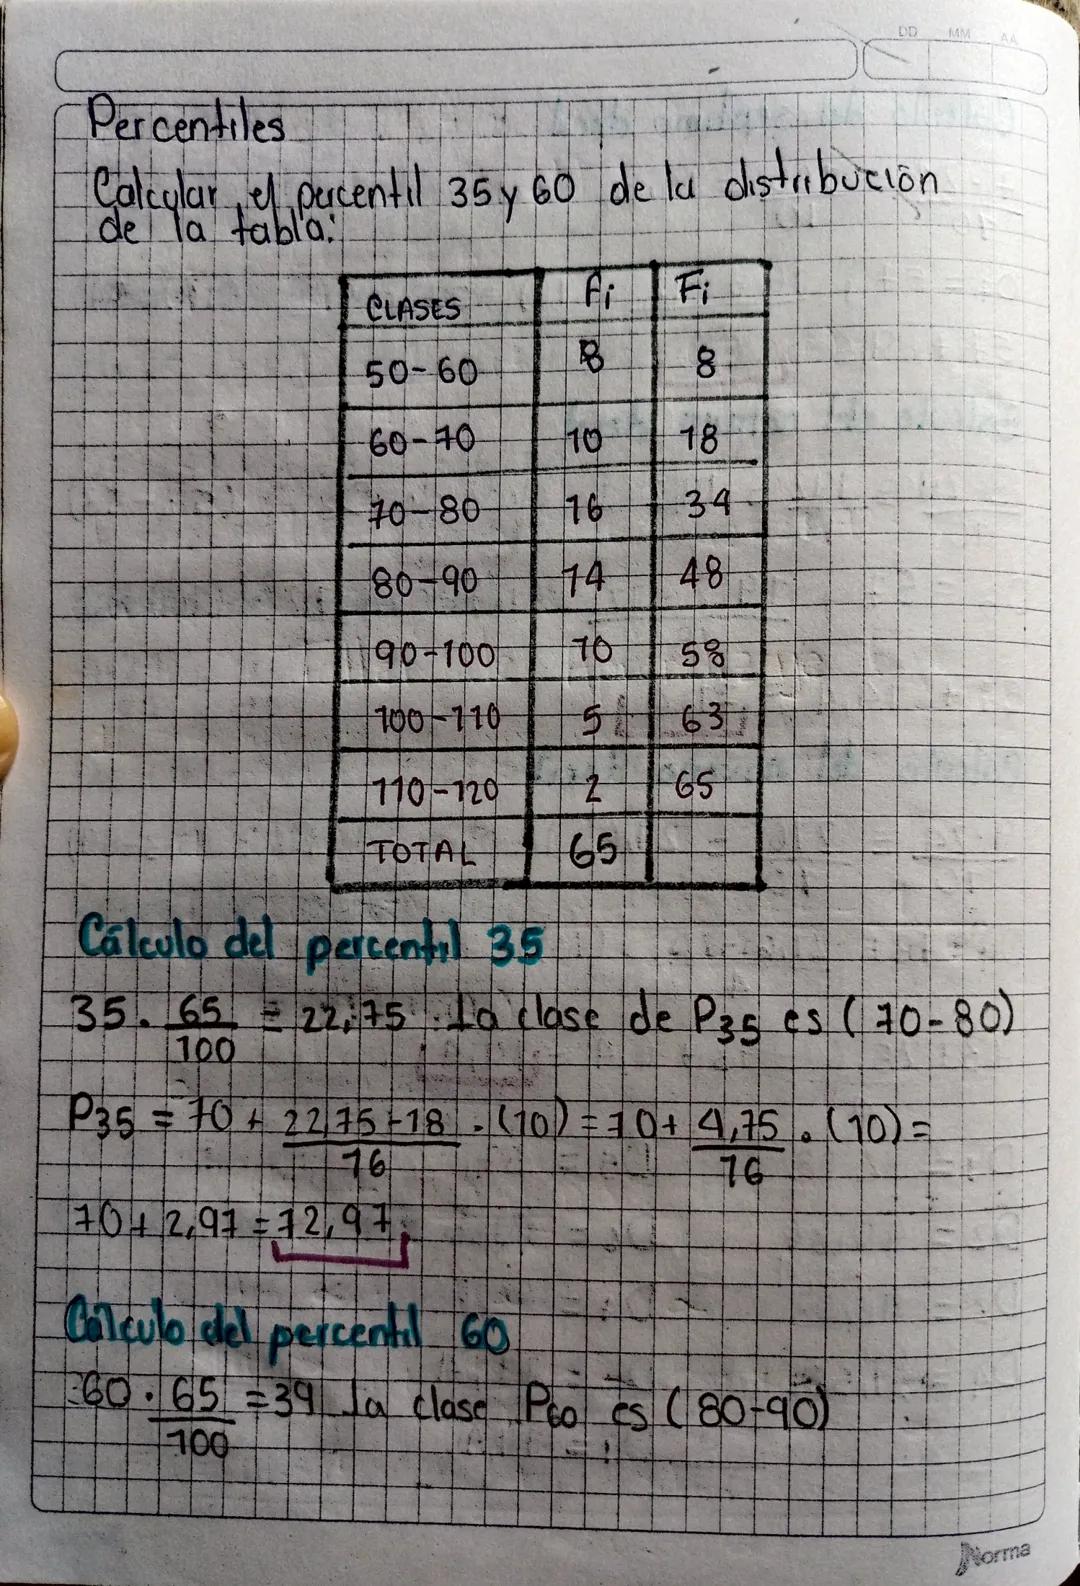 DD MM AA
Percentiles
Calcular el percentil 35 y 60 de la distribución
de la tabla:
CLASES fi Fi
50-60 8 8
60-70 10 18
70-80 16 34
80-90 14 48
90-100 10 58
100-110 5 63
110-120 2 65
TOTAL 65
Cálculo del percentil 35
35 . 65/100 = 22,75 . La clase de P35 es (70-80)
P35 = 70 + 22,75-18/16 . (10) = 70 + 4,75/16 . (10) =
70 + 2,97 = 72,97
Cálculo del percentil 60
60 . 65/100 = 39 la clase P60 es (80-90)
Norma